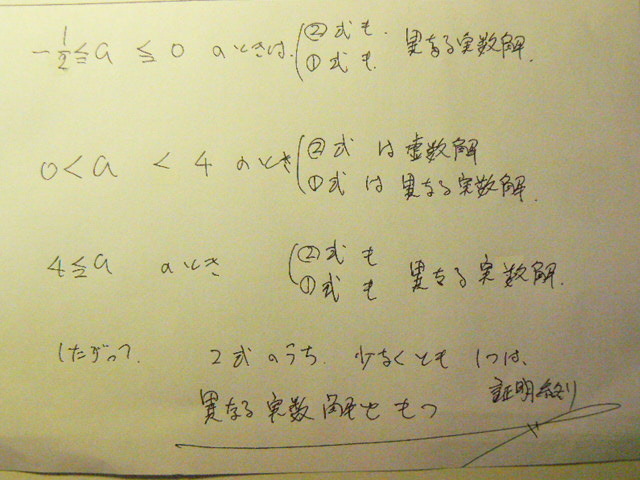 -1/2≦a≦0 のときは、②式も
①式も 異なる実数解.
0<a<4 のとき ②式は虚数解
①式は異なる実数解.
4≦a のとき ②式も
①式も 異なる実数解.
したがって、2式のうち、少なくとも1つは、
異なる実数解をもつ 証明終り